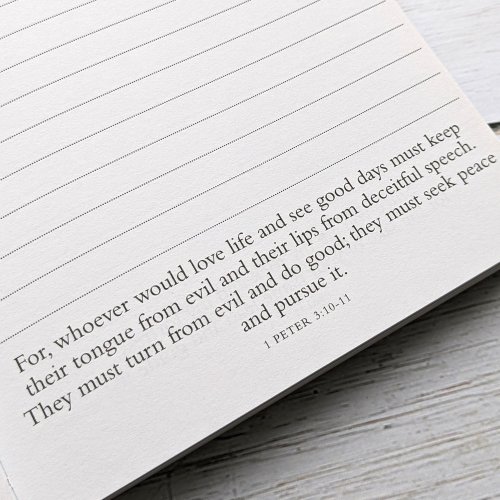 For, whoever would love life and see good days must keep
their tongue from evil and their lips from deceitful speech.
They must turn from evil and do good; they must seek peace
and pursue it.
1 PETER 3:10-11